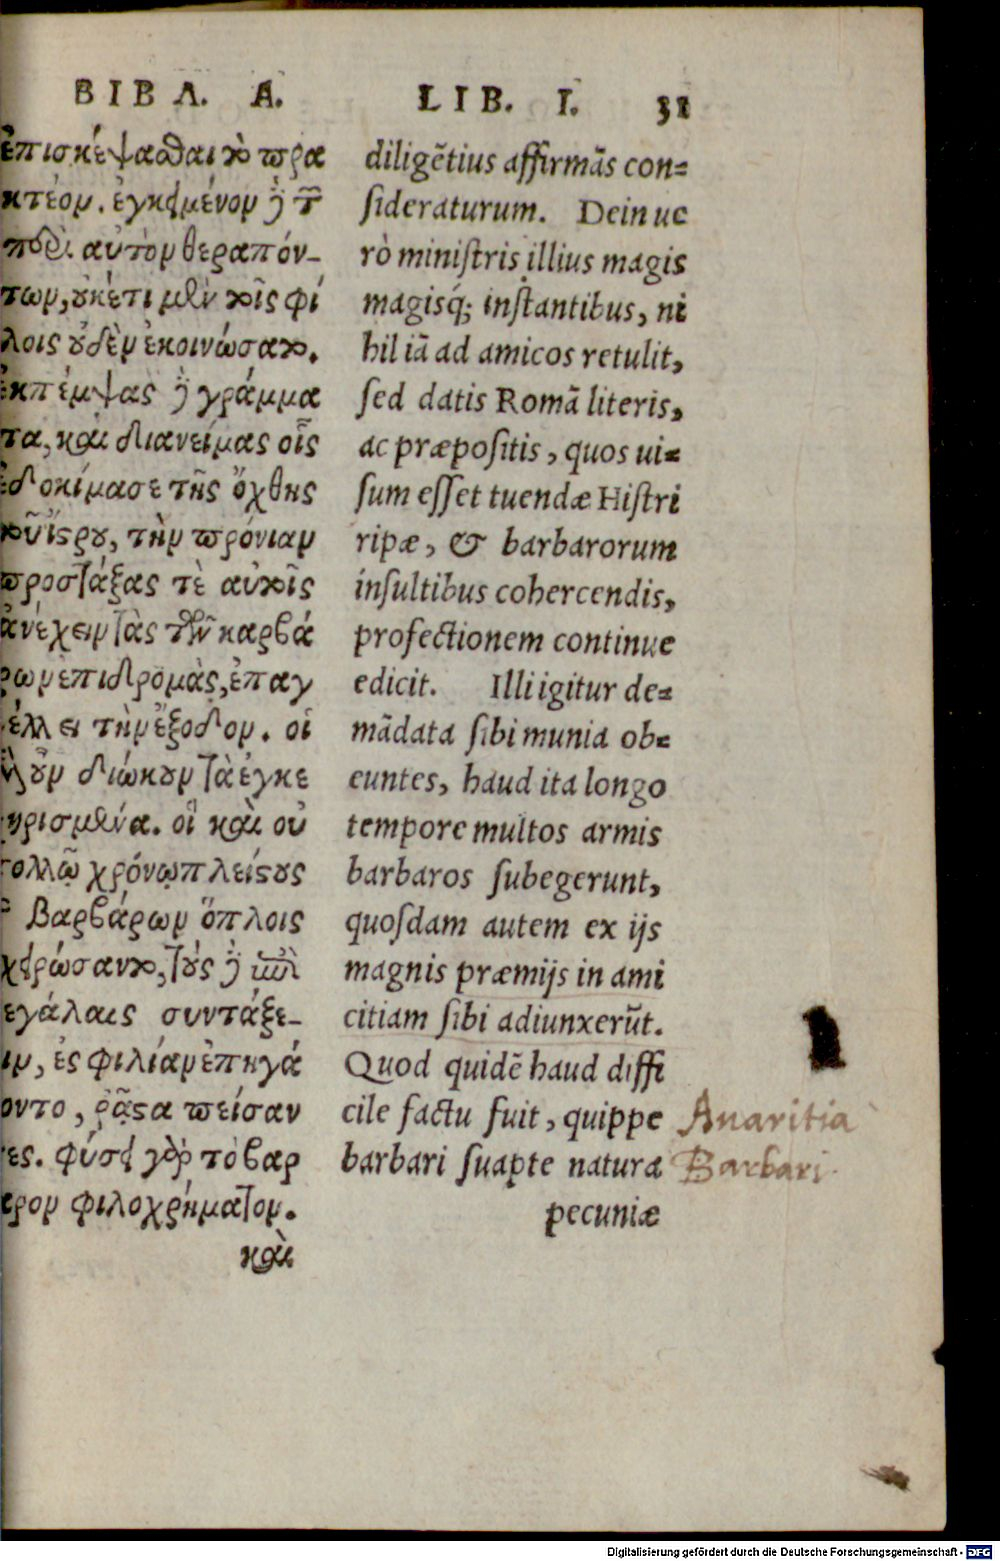 ΒΙΒΛ. Α.
ἐπισκέψασθαι τὸ πρα
κτέον. ἐγκειμένων δὲ τῶν
περὶ αὐτὸν θεραπόν-
των, οὐκέτι μὲν τοῖς φί
λοις οὐδὲν ἐκοινώσατο.
ἐκπέμψας δὲ γράμμα
τα, καὶ διανείμας οἷς
ἐδοκίμασε τῆς ὄχθης
τοῦ ἴστρου, τὴν πρόνιαν
προστάξας τὲ αὐτοῖς
ἀνέχειν τὰς τῶν βαρβά
ρων ἐπιδρομὰς, ἐπαγ
έλλει τὴν ἔξοδον. οἱ
οὖν διώκουν τὰ ἐγκε
χρισμένα. οἳ καὶ οὐ
πολλῷ χρόνῳ πλείστους
βαρβάρων ὅπλοις
χειρώσαντο, τοὺς δὲ ἐπὶ
εγάλαις συντάξε-
ιν, ἐς φιλίαν ἐπηγά
οντο, ῥᾷστα πείσαν
τες. φύσει γὰρ τὸ βαρ
ερον φιλοχρήματον.
καὶ
LIB. I. 31
diligētius affirmās con=
sideraturum. Dein ue
rò ministris illius magis
magisq́; instantibus, ni
hil iā ad amicos retulit,
sed datis Romā literis,
ac præpositis, quos ui=
sum esset tuendæ Histri
ripæ, & barbarorum
insultibus cohercendis,
profectionem continue
edicit. Illi igitur de=
mādata sibi munia ob=
euntes, haud ita longo
tempore multos armis
barbaros subegerunt,
quosdam autem ex ijs
magnis præmijs in ami
citiam sibi adiunxerūt.
Quod quidē haud diffi
cile factu fuit, quippe
barbari suapte natura
pecuniæ
Auaritia
Barbari.
Digitalisierung gefördert durch die Deutsche Forschungsgemeinschaft - DFG